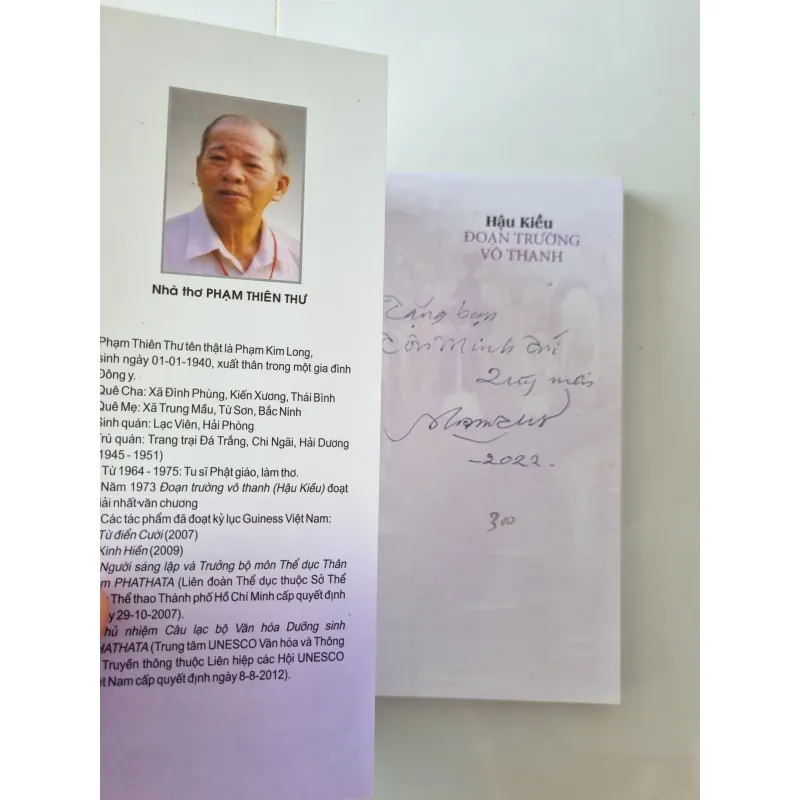 Nhà thơ PHẠM THIÊN THƯ
Phạm Thiên Thư tên thật là Phạm Kim Long,
sinh ngày 01-01-1940, xuất thân trong một gia đình
Đông y.
Quê Cha: Xã Đình Phùng, Kiến Xương, Thái Bình
Quê Mẹ: Xã Trung Mầu, Từ Sơn, Bắc Ninh
Sinh quán: Lạc Viên, Hải Phòng
Trú quán: Trang trại Đá Trắng, Chi Ngãi, Hải Dương
1945 - 1951)
Từ 1964 - 1975: Tu sĩ Phật giáo, làm thơ.
Năm 1973 Đoạn trường vô thanh (Hậu Kiều) đoạt
giải nhất văn chương
Các tác phẩm đã đoạt kỷ lục Guiness Việt Nam:
Từ điển Cười (2007)
Kinh Hiền (2009)
Người sáng lập và Trưởng bộ môn Thể dục Thân
PHATHATA (Liên đoàn Thể dục thuộc Sở Thể
Thể thao Thành phố Hồ Chí Minh cấp quyết định
29-10-2007).
hủ nhiệm Câu lạc bộ Văn hóa Dưỡng sinh
HATHATA (Trung tâm UNESCO Văn hóa và Thông
Truyền thông thuộc Liên hiệp các Hội UNESCO
ệt Nam cấp quyết định ngày 8-8-2012).
Hậu Kiều
ĐOẠN TRƯỜNG
VÔ THANH
Tặng bạn
Minh
Quý mến
-2022.
300